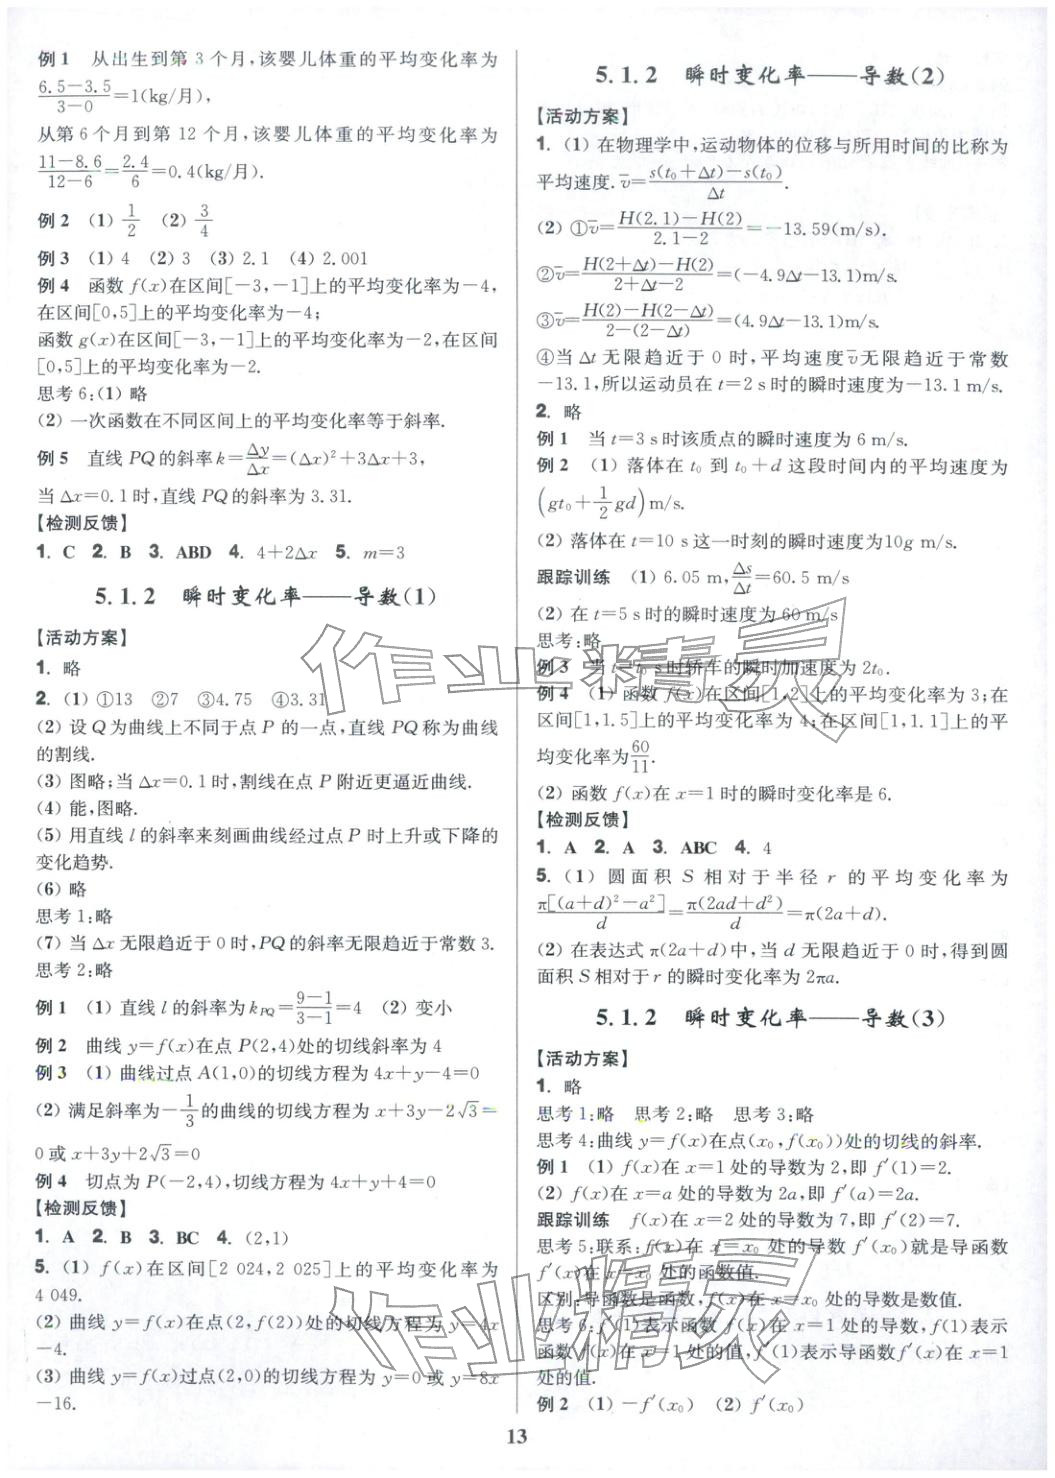 例 1 从出生到第 3 个月,该婴儿体重的平均变化率为
$\frac{6.5-3.5}{3-0}$=1(kg/月),
从第 6 个月到第 12 个月,该婴儿体重的平均变化率为
$\frac{11-8.6}{12-6}=\frac{2.4}{6}$=0.4(kg/月).
例 2 (1) $\frac{1}{2}$ (2) $\frac{3}{4}$
例 3 (1) 4 (2) 3 (3) 2.1 (4) 2.001
例 4 函数 f(x)在区间[-3,-1]上的平均变化率为-4,
在区间[0,5]上的平均变化率为-4;
函数 g(x)在区间[-3,-1]上的平均变化率为-2,在区间
[0,5]上的平均变化率为-2.
思考 6:(1) 略
(2) 一次函数在不同区间上的平均变化率等于斜率.
例 5 直线 PQ的斜率 k=$\frac{Δy}{Δx}$=(Δx)²+3Δx+3,
当Δx=0.1时,直线 PQ的斜率为 3.31.
【检测反馈】
1. C 2. B 3. ABD 4. 4+2Δx 5. m=3
5.1.2 瞬时变化率——导数(1)
【活动方案】
1. 略
2. (1) ①13 ②7 ③4.75 ④3.31
(2) 设 Q为曲线上不同于点 P 的一点,直线 PQ称为曲线
的割线.
(3) 图略;当 Δx=0.1时,割线在点 P 附近更逼近曲线.
(4) 能,图略.
(5) 用直线 l 的斜率来刻画曲线经过点 P 时上升或下降的
变化趋势.
(6) 略
思考 1:略
(7) 当 Δx 无限趋近于 0 时,PQ的斜率无限趋近于常数 3.
思考 2:略
例 1 (1) 直线 l 的斜率为 $k_{PQ}=\frac{9-1}{3-1}$=4 (2) 变小
例 2 曲线 y=f(x)在点 P(2,4)处的切线斜率为 4
例 3 (1) 曲线过点 A(1,0)的切线方程为 4x+y-4=0
(2) 满足斜率为-$\frac{1}{3}$的曲线的切线方程为 x+3y-2√3=
0 或 x+3y+2√3=0
例 4 切点为 P(-2,4),切线方程为 4x+y+4=0
【检测反馈】
1. A 2. B 3. BC 4. (2,1)
5. (1) f(x)在区间[2 024,2 025]上的平均变化率为
4 049.
(2) 曲线 y=f(x)在点(2,f(2))处的切线方程为 y=4x
-4.
(3) 曲线 y=f(x)过点(2,0)的切线方程为 y=0 或 y=8x
-16.
5.1.2 瞬时变化率——导数(2)
【活动方案】
1. (1) 在物理学中,运动物体的位移与所用时间的比称为
平均速度.$\bar{v}=\frac{s(t_0+Δt)-s(t_0)}{Δt}$.
(2) ①$\bar{v}=\frac{H(2.1)-H(2)}{2.1-2}$=-13.59(m/s).
②$\bar{v}=\frac{H(2+Δt)-H(2)}{2+Δt-2}$=(-4.9Δt-13.1)m/s.
③$\bar{v}=\frac{H(2)-H(2-Δt)}{2-(2-Δt)}$=(4.9Δt-13.1)m/s.
④当 Δt 无限趋近于 0 时,平均速度$\bar{v}$无限趋近于常数
-13.1,所以运动员在 t=2 s时的瞬时速度为-13.1 m/s.
2. 略
例 1 当 t=3 s时该质点的瞬时速度为 6 m/s.
例 2 (1) 落体在 t₀ 到 t₀+d 这段时间内的平均速度为
$\left(gt_0+\frac{1}{2}gd\right)$m/s.
(2) 落体在 t=10 s 这一时刻的瞬时速度为10g m/s.
跟踪训练 (1) 6.05 m,$\frac{Δs}{Δt}$=60.5 m/s
(2) 在 t=5 s 时的瞬时速度为 60 m/s
思考:略
例 3 当 t=t₀ s时轿车的瞬时加速度为 2t₀.
例 4 (1) 函数 f(x)在区间[1,2]上的平均变化率为 3;在
区间[1,1.5]上的平均变化率为 4;在区间[1,1.1]上的平
均变化率为$\frac{60}{11}$.
(2) 函数 f(x)在 x=1 时的瞬时变化率是 6.
【检测反馈】
1. A 2. A 3. ABC 4. 4
5. (1) 圆面积 S 相对于半径 r 的平均变化率为
$\frac{π[(a+d)^2-a^2]}{d}=\frac{π(2ad+d^2)}{d}$=π(2a+d).
(2) 在表达式 π(2a+d)中,当 d 无限趋近于 0 时,得到圆
面积 S相对于 r 的瞬时变化率为 2πa.
5.1.2 瞬时变化率——导数(3)
【活动方案】
1. 略
思考 1:略 思考 2:略 思考 3:略
思考 4:曲线 y=f(x)在点(x₀,f(x₀))处的切线的斜率.
例 1 (1) f(x)在 x=1 处的导数为 2,即 f′(1)=2.
(2) f(x)在 x=a 处的导数为 2a,即 f′(a)=2a.
跟踪训练 f(x)在 x=2 处的导数为 7,即 f′(2)=7.
思考 5:联系:f(x)在 x=x₀ 处的导数 f′(x₀)就是导函数
f′(x)在 x=x₀ 处的函数值.
区别:导函数是函数,f(x)在 x=x₀ 处的导数是数值.
思考 6:f′(1)表示函数 f(x)在 x=1 处的导数,f(1)表示
函数 f(x)在 x=1 处的值,f′(x)表示导函数在 x=1
处的值.
例 2 (1) -f′(x₀) (2) f′(x₀)
13
作业精灵
作业精灵